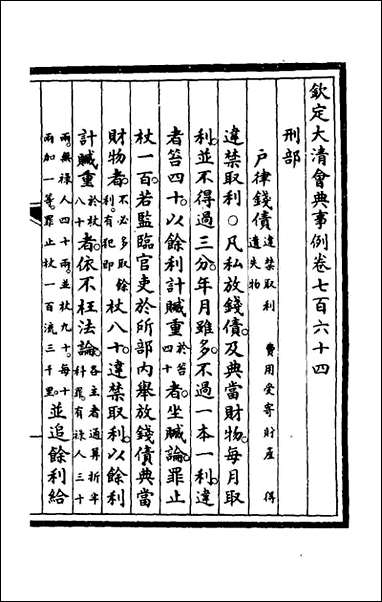 欽定大清會典事例卷七百六十四
刑部
戶律錢債違禁取利 費用受寄財產 得遺失物
違禁取利○凡私放錢債。及典當財物。每月取
利。並不得過三分。年月雖多。不過一本一利。違
者笞四十。以餘利計贓重於笞四十者。坐贓論。罪止
杖一百。若監臨官吏於所部內舉放錢債典當
財物者。不必多取餘利。有犯即杖八十。違禁取利。以餘利
計贓重於杖八十者。依不枉法論。各主者通算折半科罪。有祿人三十
兩。無祿人四十兩。並杖九十。每十兩加一等。罪止杖一百流三千里。並追餘利給